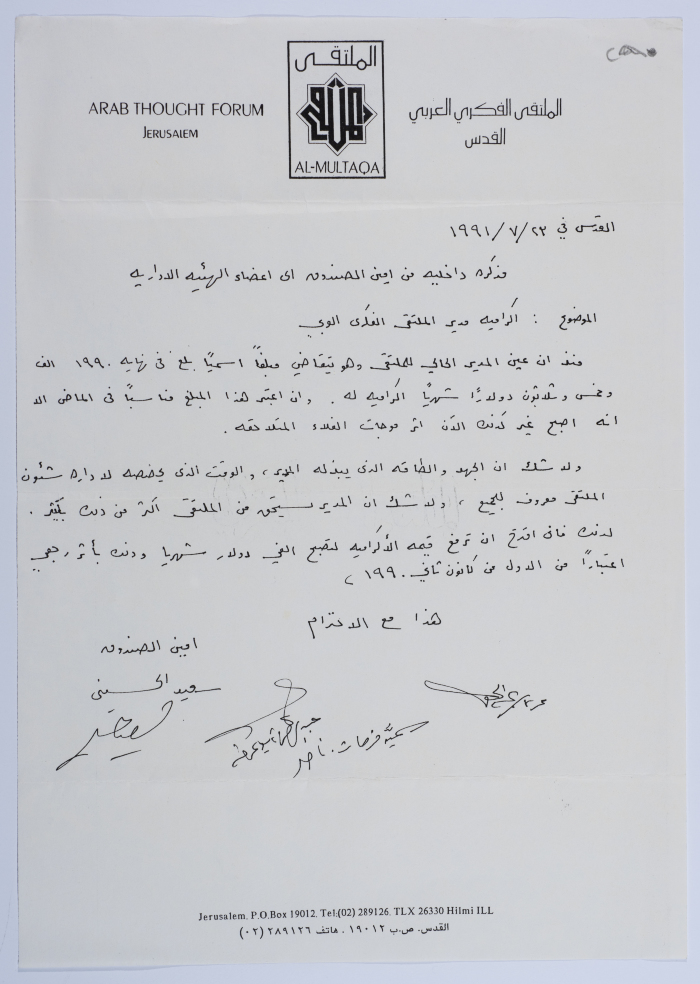 الملتقى
AL-MULTAQA
ARAB THOUGHT FORUM
JERUSALEM
الملتقى الفكري العربي
القدس
القدس في ٢٣/ ٧/ ١٩٩١
مذكره داخليه من امين الصندوق الى اعضاء الهيئه الاداريه
الموضوع : اكراميه مدير الملتقى الفكري العربي
منذ ان عين المدير الحالي للملتقى وهو يتقاضى مبلغاً اسمياً بلغ في نهايه ١٩٩٠ الف
وخمس وثلاثون دولاراً شهرياً اكراميه له . وان اعتبر هذا المبلغ مناسباً في الماضي الا
انه اصبح غير كذلك الآن اثر موجات الغلاء المتلاحقه .
ولا شك ان الجهد والطاقه الذى يبذله المدير ، والوقت الذى يخصصه لاداره شئون
الملتقى معروف للجميع ، ولا شك ان المدير يستحق من الملتقى اكثر من ذلك بكثير .
لذلك فانى اقترح ان ترفع قيمه الأكراميه لتصبح الفي دولار شهريا وذلك بأثر رجعي
اعتباراً من الاول من كانون ثاني ١٩٩٠
هذا مع الاحترام
امين الصندوق
سعيد الحسيني
سميه فرحات . ناصر
Jerusalem. P.O.Box 19012. Tel:(02) 289126. TLX 26330 Hilmi ILL
القدس. ص.ب ١٩٠١٢ . هاتف ٢٨٩١٢٦ (٠٢)